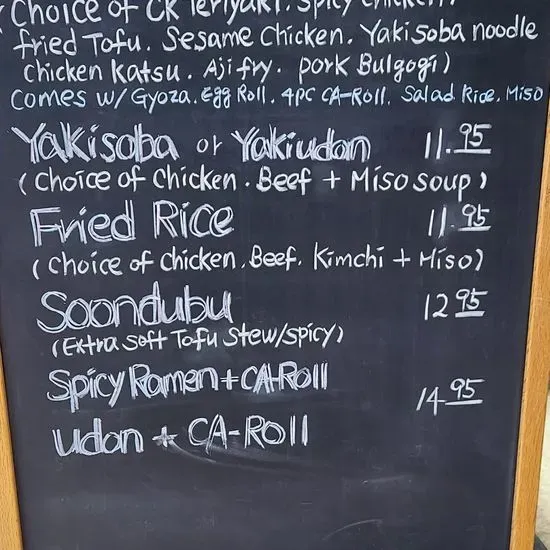 (Choice of CK Teriyaki. Spicy chicken,
fried Tofu. Sesame Chicken. Yakisoba noodle
chicken Katsu. Aji fry. pork Bulgogi)
Comes w/ Gyoza. Egg Roll. 4pc CA-Roll. Salad Rice. Miso
Yakisoba or Yakiudon 11.95
(Choice of Chicken. Beef + Miso soup)
Fried Rice 11.95
(Choice of Chicken. Beef. Kimchi + Miso)
Soondubu 12.95
(Extra soft Tofu Stew/spicy)
Spicy Ramen + CA-Roll
14.95
Udon + CA-Roll